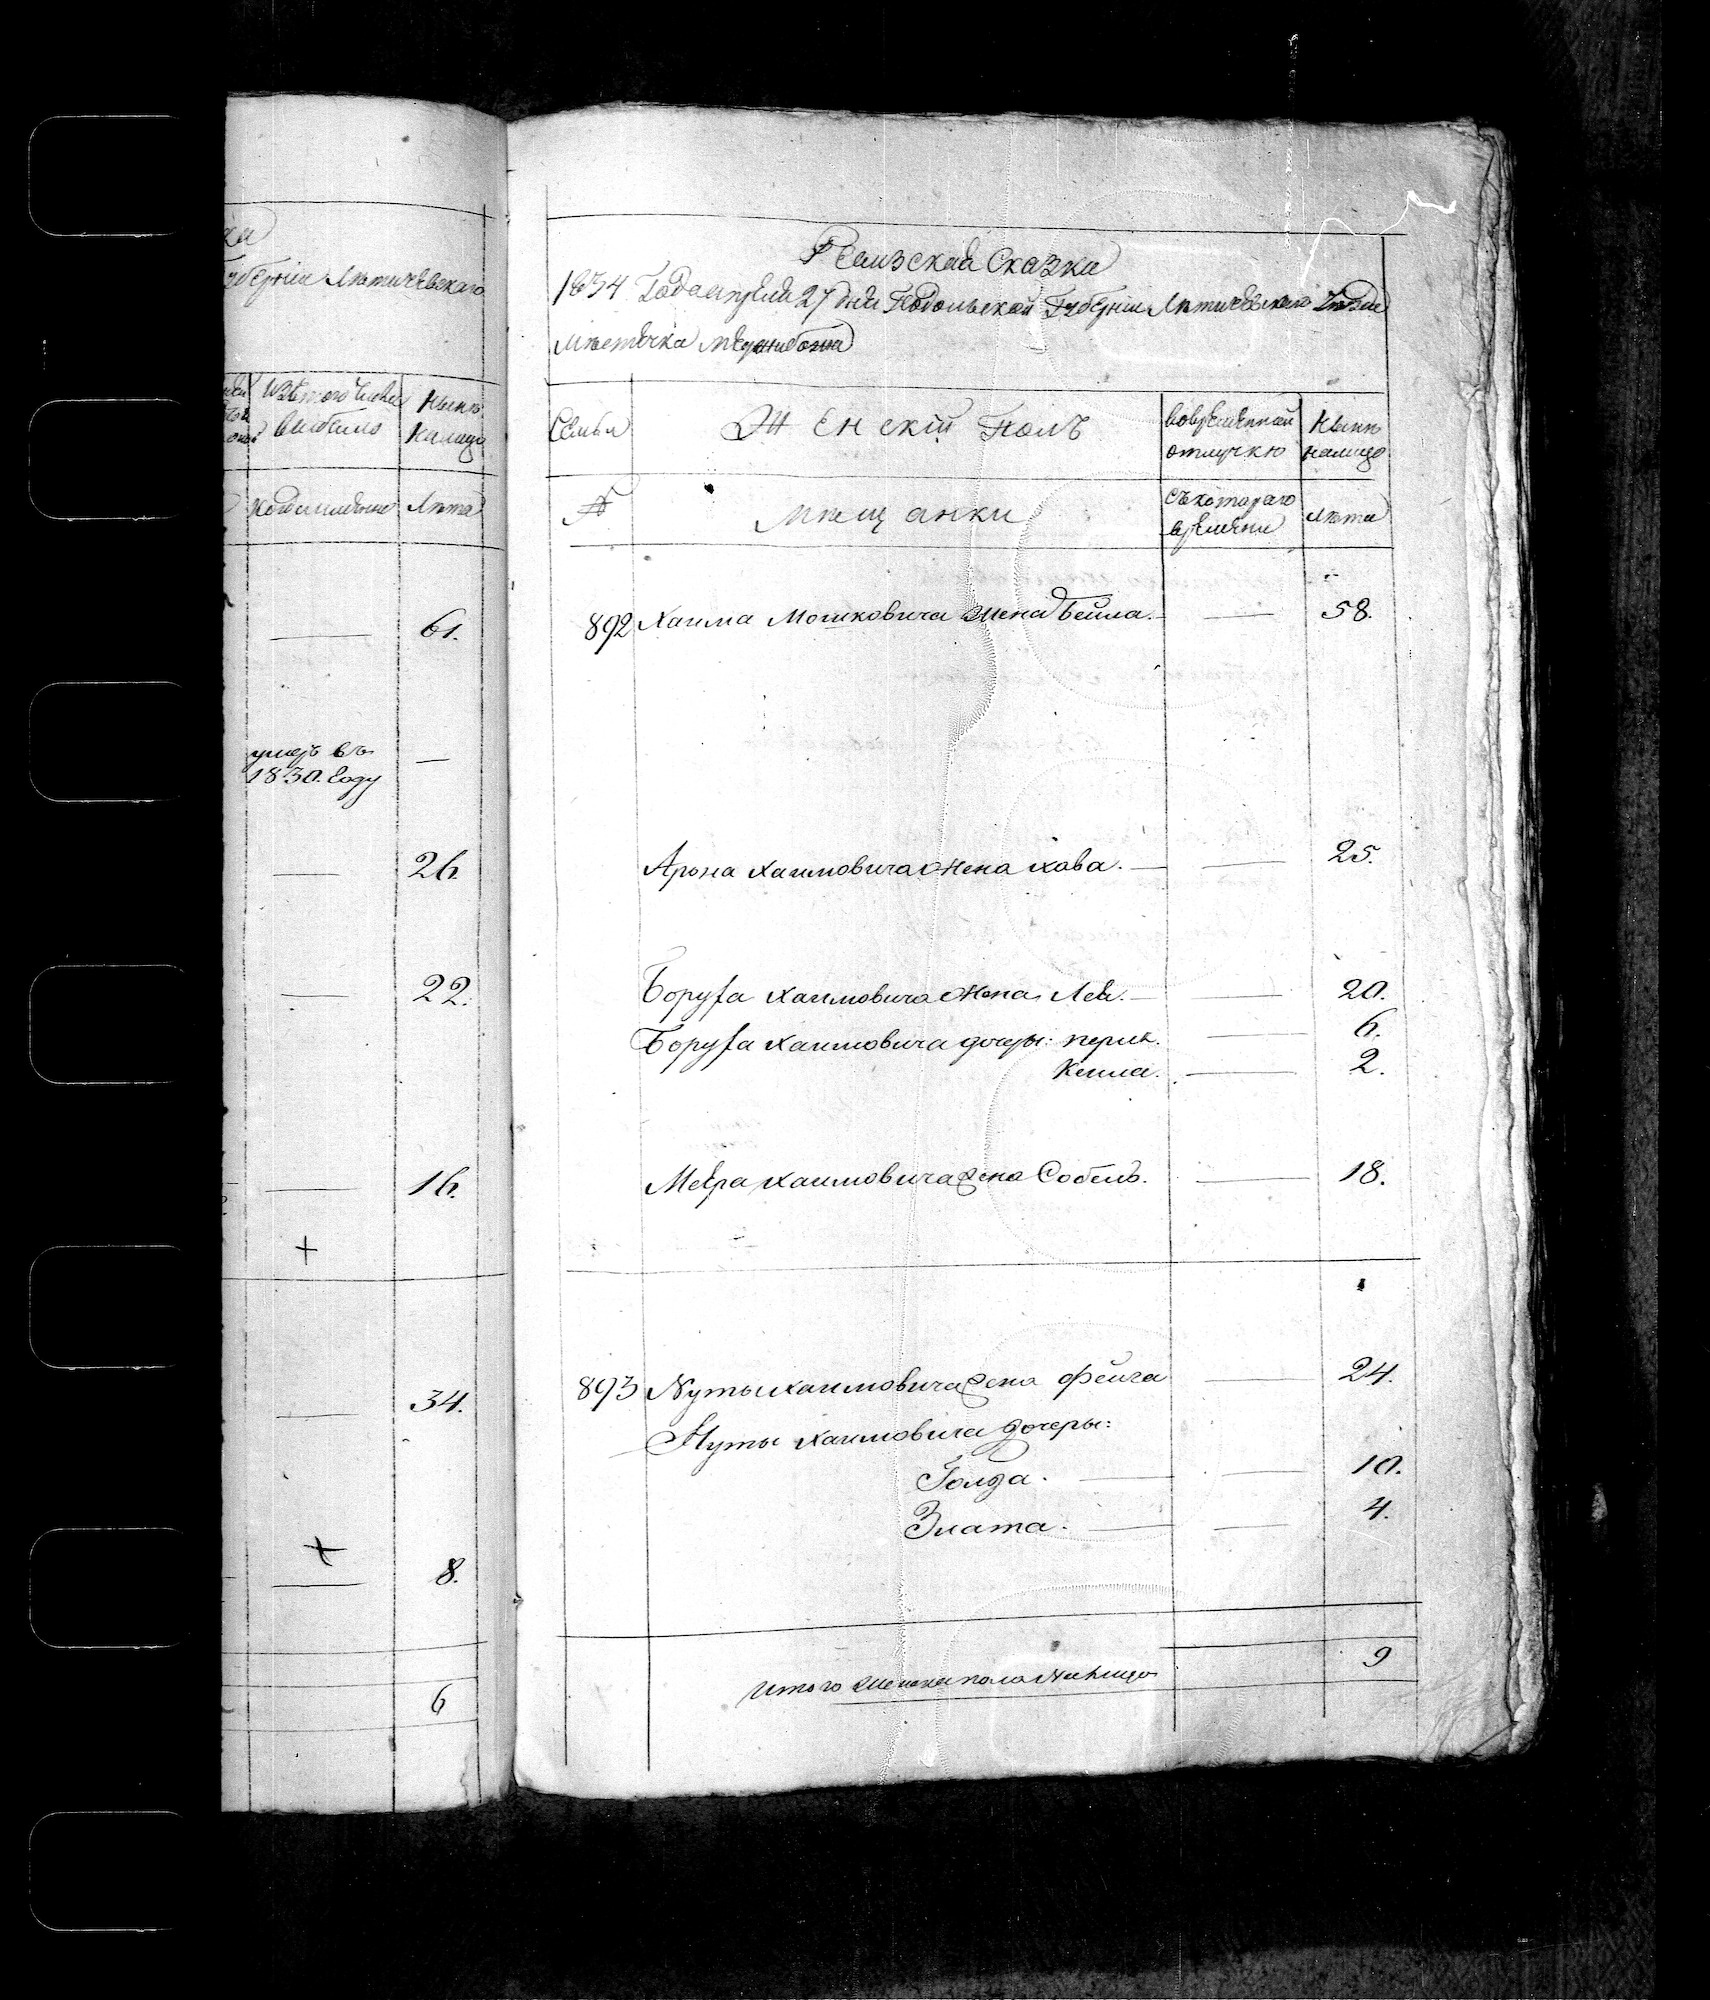 ка
Губерніи Летичевскаго
Изътого числа
выбыло
Ныне
налицо
Когда имянно
Лета
61.
умеръ въ
1830. году
26.
22.
16.
34.
8.
6
Ревизская Сказка
1834 Года апреля 27 дня Подольской Губерніи Летичевского Уезда
местечка Меджибожа
Семьи
Женскій Полъ
вовременной
отлучке
Ныне
налицо
№
Мещанки
съкотораго
времени
Лета
892 Хаима Мошковича жена Бейла. 58.
Арона Хаимовича жена Хава. 25.
Боруха Хаимовича жена Лея. 20.
Боруха Хаимовича дочери: перля. 6.
Кейла. 2.
Меера Хаимовича жена Собель. 18.
893 Нуты Хаимовича жена Фейга 24.
Нуты Хаимовича дочеры:
Голда. 10.
Злата. 4.
Итого женска пола налицо 9